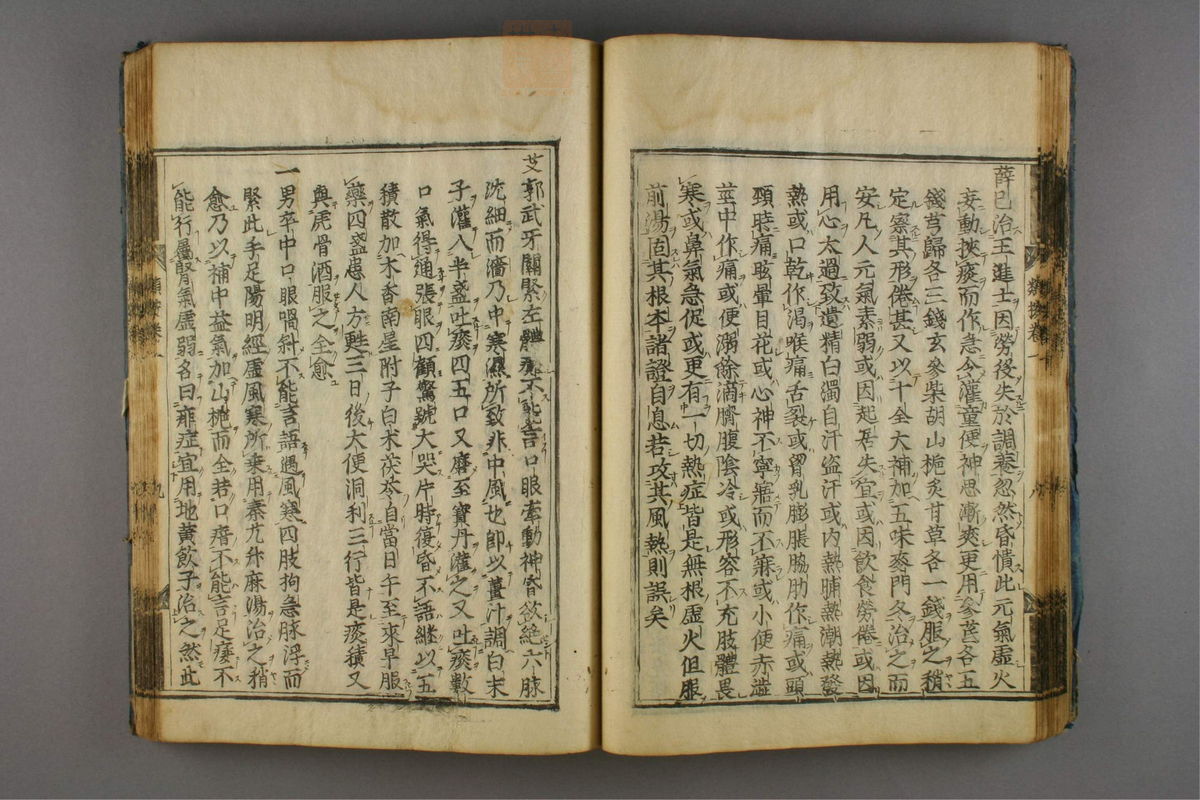 薛已治王進士因勞後失於調養忽然昏憒此元氣虛火
妄動挾痰而作急令灌童便神思漸爽更用參芪各五
錢芎歸各三錢玄參柴胡山梔炙甘草各一錢服之稍
定察其形倦甚又以十全大補加五味麥門冬治之而
安凡人元氣素弱或因起居失宜或因飲食勞倦或因
用心太過致遺精白濁自汗盜汗或內熱晡熱潮熱發
熱或口乾作渴喉痛舌裂或胷乳膨脹脇肋作痛或頭
頸時痛眩暈目花或心神不寧寤而不寐或小便赤澁
莖中作痛或便溺餘滴臍腹陰冷或形容不充肢體畏
寒或鼻氣急促或更有一切熱症皆是無根虛火但服
前湯固其根本諸證自息若攻其風熱則誤矣
艾郭武牙關緊左體不能言口眼牽動神昏欲絕六脉
沉細而濇乃中寒濕所致非中風也即以薑汁調白末
子灌八半盞吐痰四五口又磨至寶丹灌之又吐痰數
口氣得通張眼四顧驚號大哭片時復昏不語繼以五
積散加木香南星附子白术茯苓自當日午至來早服
藥四盞患人方甦三日後大便洞利三行皆是痰積又
與虎骨酒服之全愈
一男卒中口眼喎斜不能言語遇風寒四肢拘急脉浮而
緊此手足陽明經虛風寒所乗用秦艽升麻湯治之稍
愈乃以補中益氣加山梔而全若口瘖不能言足痿不
能行屬腎氣虛弱名曰痱症宜用地黃飲子治之然此
類按卷一
八
類按卷一
九